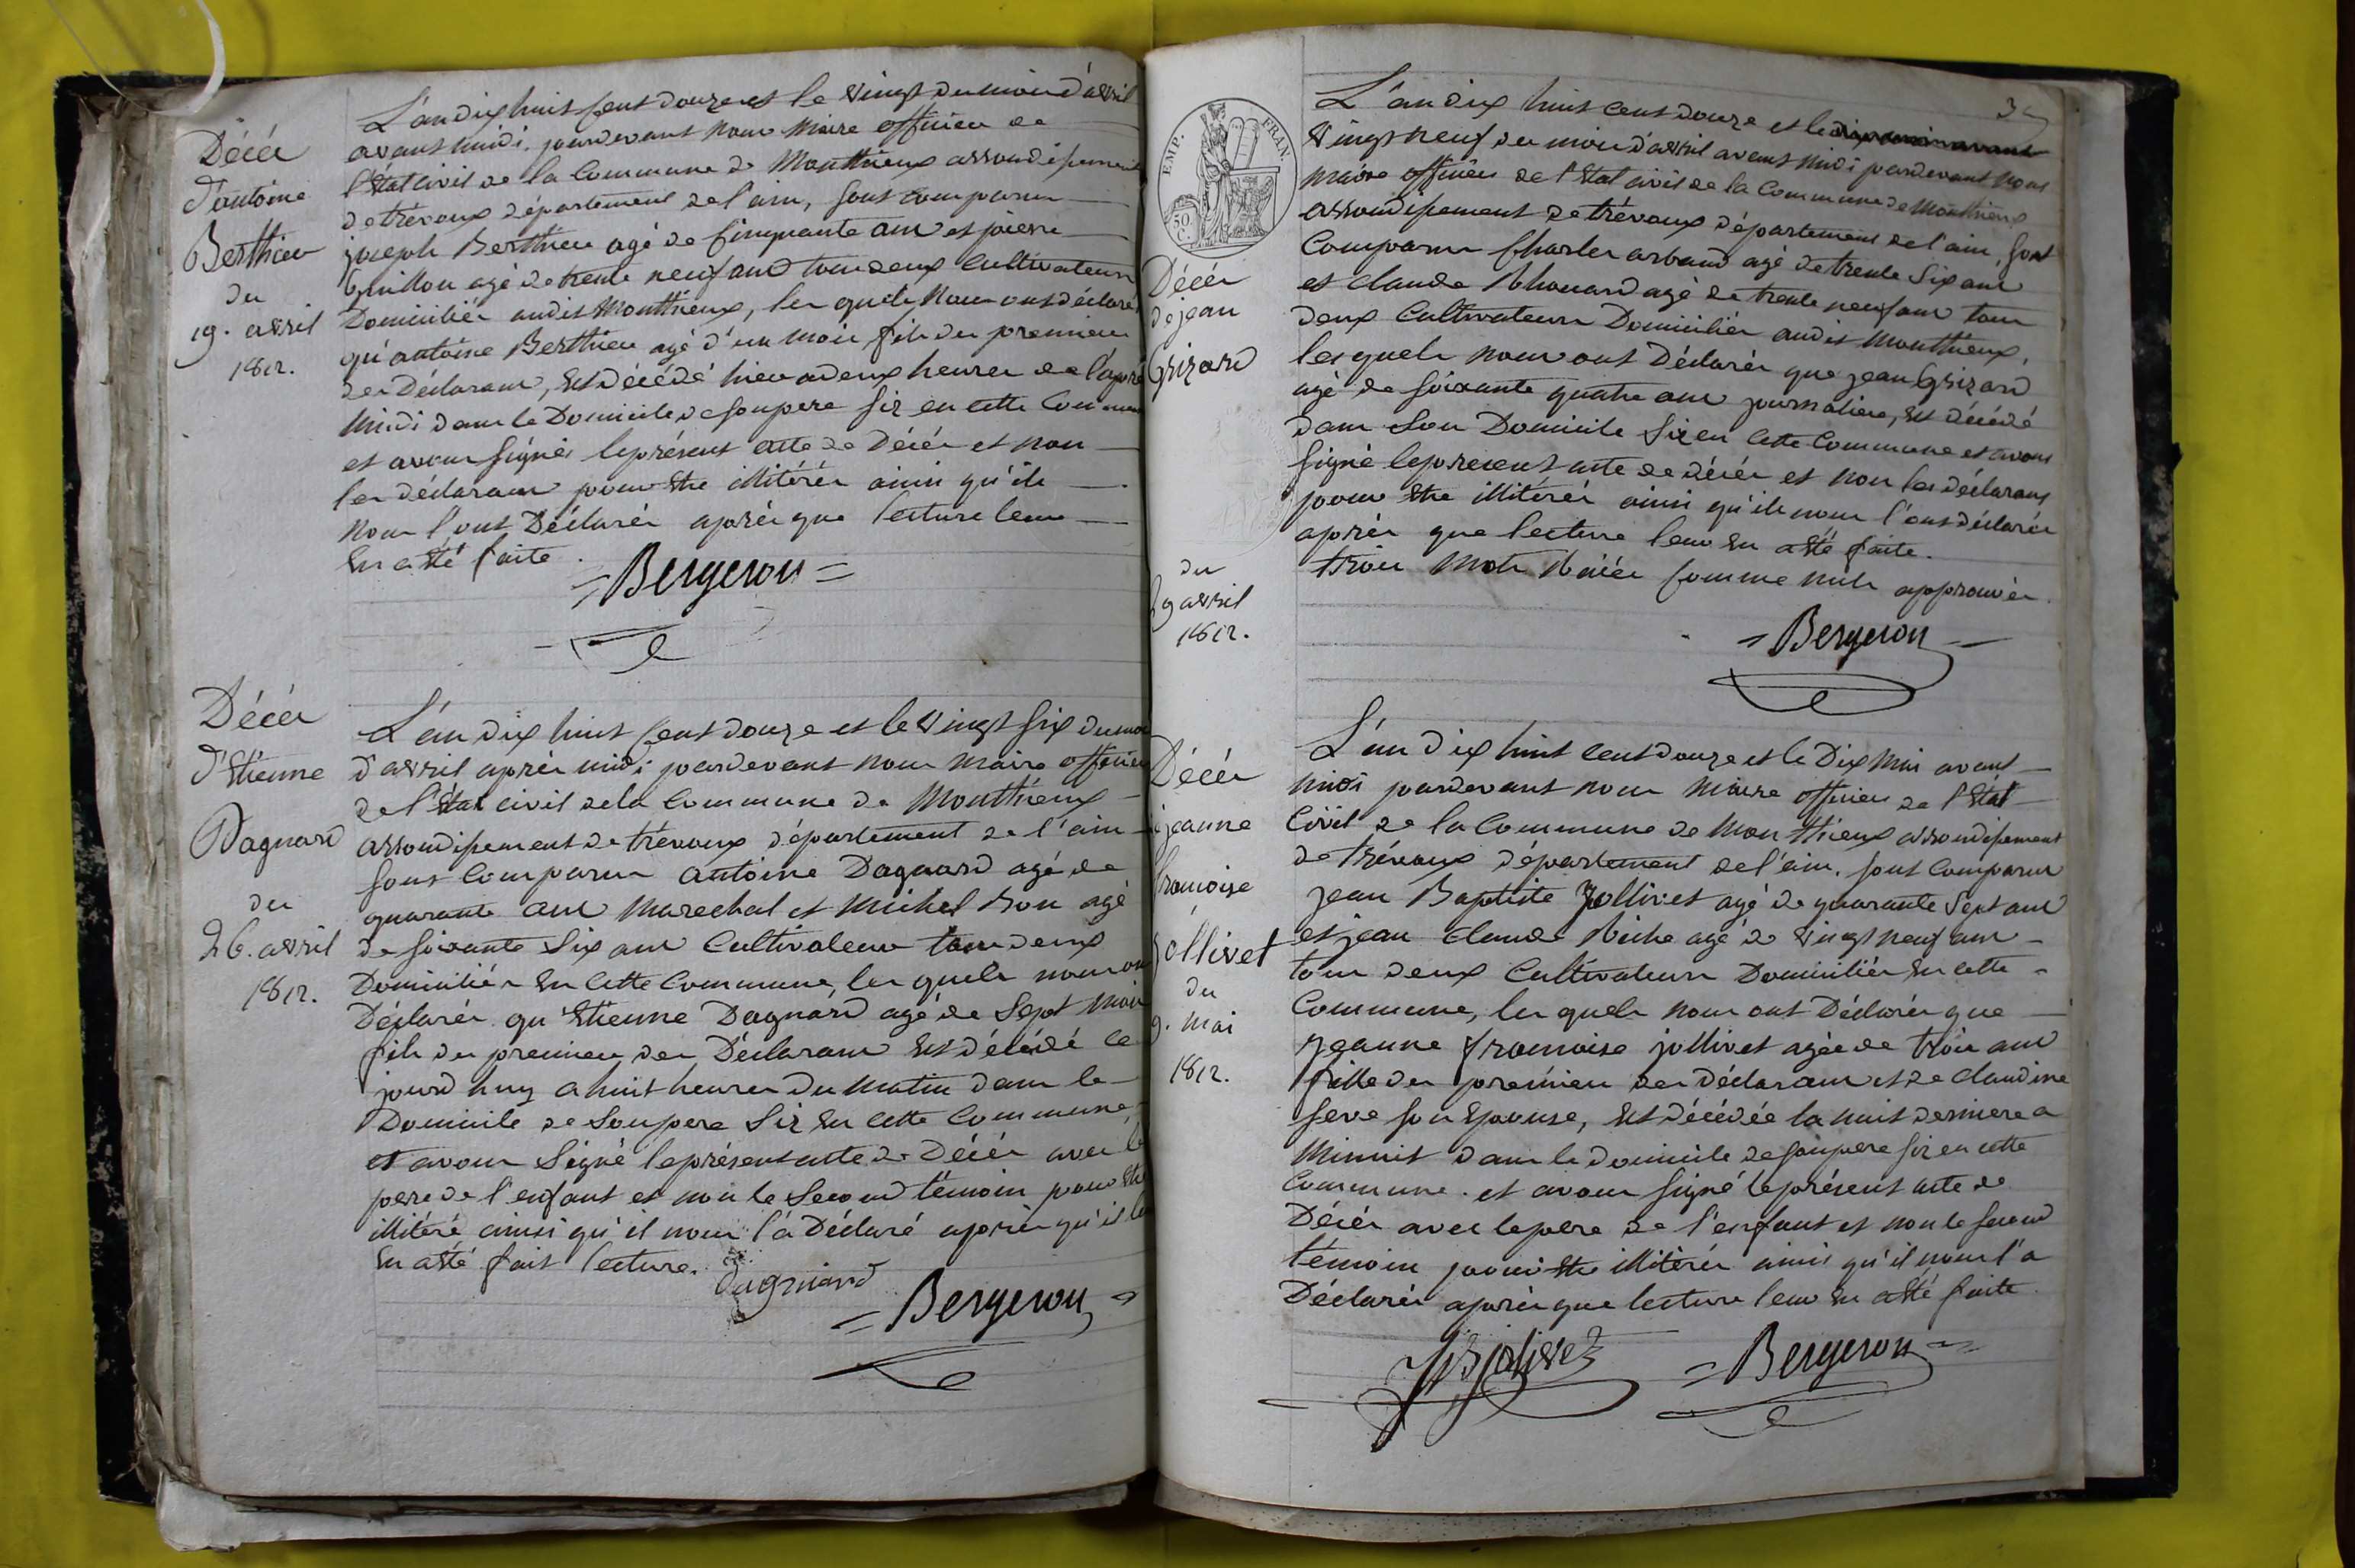 Décés
d'antoine
Berthier
du
19. avril
1812.
L'an dix huit Cent douze et le vingt du mois d'avril
avant midi, pardevant nous Maire officier de
l'Etat Civil de la Commune de Monthieux arrondissement
de trévoux département de l'ain, sont comparus
joseph Berthier agé de Cinquante ans et pierre
Guillon agé de trente neuf ans tous deux Cultivateurs
Domiciliés audit Monthieux, les quels Nous ont déclarés
qu'antoine Berthier agé d'un mois, fils du premier
des Déclarans, Est décédé hier a deux heures de l'aprés
Midi dans le Domicile de son pere siz en cette Commune
et avons signés le présent acte de Décés et non
les déclarans pour Etre illitérés ainsi qu'ils
nous l'ont Déclarés aprés que lecture leur
En a Eté faite.
Bergeron
Décés
d'Etienne
Dagnard
du
26. avril
1812.
L'an dix huit Cent douze et le vingt six du mois
d'avril aprés midi pardevant nous Maire officier
de l'Etat civil de la Commune de Monthieux
arrondissement de trévoux département de l'ain
sont Comparus antoine Dagnard agé de
quarante ans Marechal et Michel Bon agé
de soixante Six ans Cultivateur tous deux
Domiciliés En Cette Commune, les quels nous ont
Déclarés qu'Etienne Dagnard agé de Sept Mois
fils du premier des Déclarans Est décédé ce
jourd'huy a huit heures du Matin dans le
Domicile de Son pere Siz En Cette Commune,
et avons Signé le présent acte de Décés avec le
pere de l'enfant et non le Second témoin pour Etre
illitéré ainsi qu'il nous l'a Déclaré aprés qu'il lui
En a Eté fait lecture.
dagniard
Bergeron
EMP. FRAN.
50 C.
Décés
de jean
Grizard
du
29 avril
1812.
L'an dix huit cent douze et le
vingt neuf du mois d'avril avant midi pardevant nous
Maire officier de l'Etat civil de la Commune de Monthieux
arrondissement de trévoux département de l'ain, sont
Comparus Charles arband agé de trente Six ans
et Claude Chouard agé de trente neuf ans tous
deux Cultivateurs Domiciliés audit Monthieux,
les quels nous ont Déclarés que jean Grizard
agé de soixante quatre ans journalier, Est décédé
dans Son Domicile Siz en Cette Commune et avons
signé le present acte de décés et non les déclarans
pour Etre illitérés ainsi qu'ils nous l'ont déclarés
aprés que lecture leur En a Eté faite.
trois Mots Raiés Comme nuls approuvés.
Bergeron
Décés
de jeanne
francoise
Jollivet
du
9. Mai
1812.
L'an dix huit cent douze et le Dix Mai avant
Midi pardevant nous Maire officier de l'Etat
Civil de la Commune de Monthieux arrondissement
de trévoux département de l'ain. sont Comparus
Jean Baptiste Jollivet agé de quarante Sept ans
et jean Claude Riche agé de vingt neuf ans
tous deux Cultivateurs Domiciliés En cette
Commune, les quels nous ont Déclarés que
jeanne francoise jollivet agée de trois ans
fille du premier des déclarans et de Claudine
seve son Epouse, Est décédée la nuit derniere a
Minuit dans le domicile de son pere siz en cette
Commune. et avons signé le présent acte de
Décés avec le pere de l'enfant et non le second
témoin pour Etre illitérés ainsi qu'il nous l'a
Déclarés aprés que lecture leur En a Eté faite.
JB jolivet
Bergeron